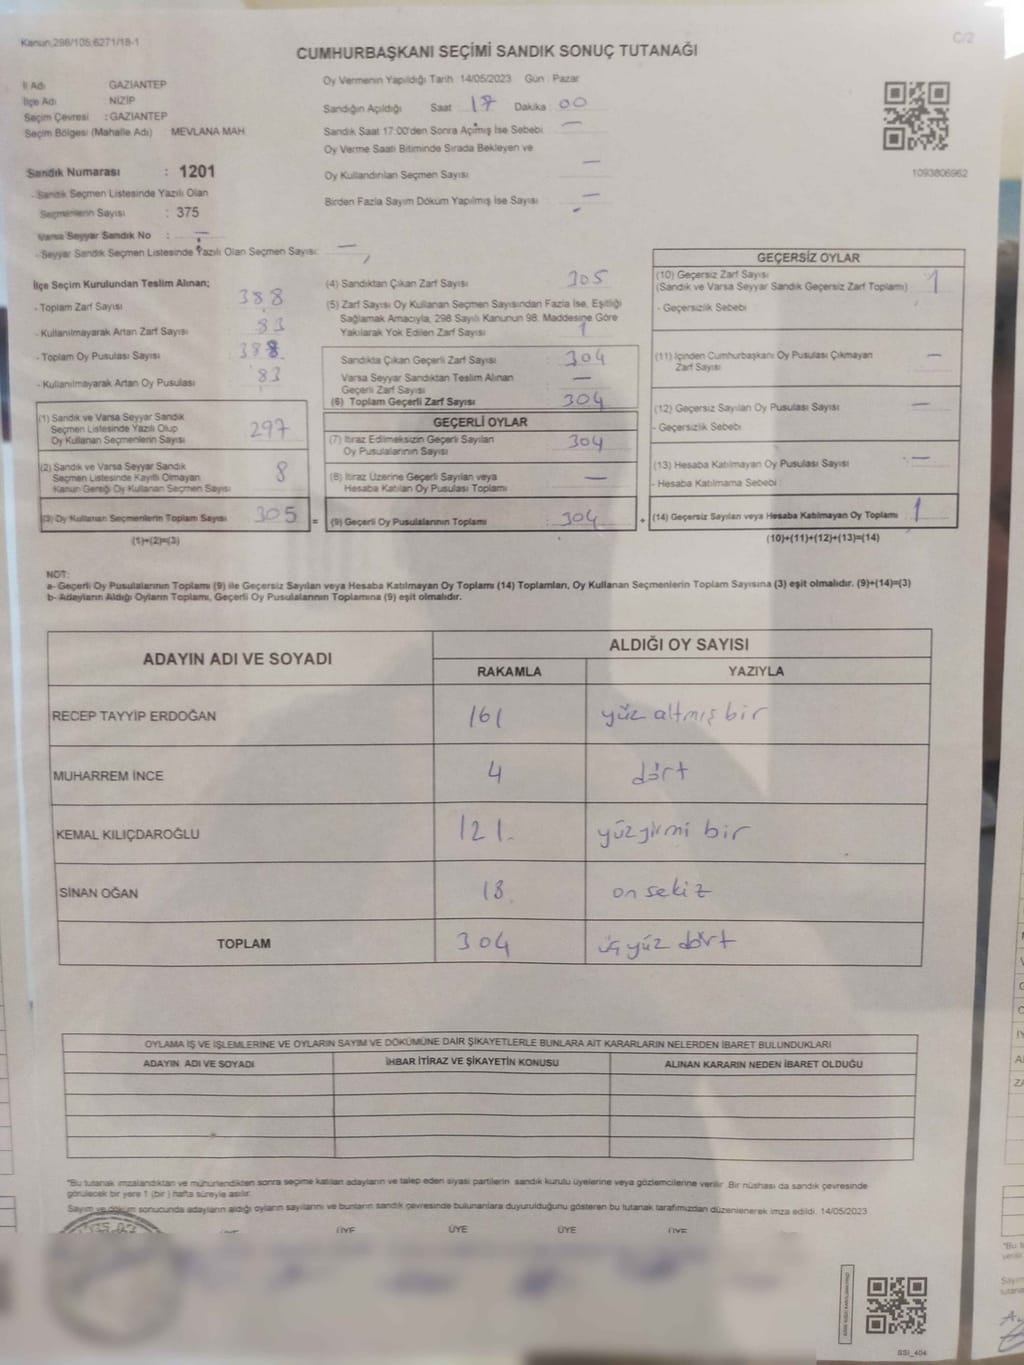 Kanun;298/105,6271/18-1
C/2
CUMHURBAŞKANI SEÇİMİ SANDIK SONUÇ TUTANAĞI
İl Adı : GAZİANTEP
İlçe Adı : NİZİP
Seçim Çevresi : GAZİANTEP
Seçim Bölgesi (Mahalle Adı) : MEVLANA MAH
Sandık Numarası : 1201
- Sandık Seçmen Listesinde Yazılı Olan
Seçmenlerin Sayısı : 375
Varsa Seyyar Sandık No : —
- Seyyar Sandık Seçmen Listesinde Yazılı Olan Seçmen Sayısı: —
Oy Vermenin Yapıldığı Tarih :14/05/2023 Gün : Pazar
Sandığın Açıldığı Saat 17 Dakika 00
Sandık Saat 17:00'den Sonra Açımış İse Sebebi : —
Oy Verme Saati Bitiminde Sırada Bekleyen ve
Oy Kullandırılan Seçmen Sayısı : —
Birden Fazla Sayım Döküm Yapılmış İse Sayısı : —
1093806962
İlçe Seçim Kurulundan Teslim Alınan;
- Toplam Zarf Sayısı : 388
- Kullanılmayarak Artan Zarf Sayısı : 83
- Toplam Oy Pusulası Sayısı : 388
- Kullanılmayarak Artan Oy Pusulası : 83
(1) Sandık ve Varsa Seyyar Sandık
Seçmen Listesinde Yazılı Olup
Oy Kullanan Seçmenlerin Sayısı : 297
(2) Sandık ve Varsa Seyyar Sandık
Seçmen Listesinde Kayıtlı Olmayan
Kanun Gereği Oy Kullanan Seçmen Sayısı : 8
(3) Oy Kullanan Seçmenlerin Toplam Sayısı : 305 =
(1)+(2)=(3)
(4) Sandıktan Çıkan Zarf Sayısı : 305
(5) Zarf Sayısı Oy Kullanan Seçmen Sayısından Fazla İse, Eşitliği
Sağlamak Amacıyla, 298 Sayılı Kanunun 98. Maddesine Göre
Yakılarak Yok Edilen Zarf Sayısı : 1
Sandıkta Çıkan Geçerli Zarf Sayısı : 304
Varsa Seyyar Sandıktan Teslim Alınan
Geçerli Zarf Sayısı : —
(6) Toplam Geçerli Zarf Sayısı : 304
GEÇERLİ OYLAR
(7) İtiraz Edilmeksizin Geçerli Sayılan
Oy Pusulalarının Sayısı : 304
(8) İtiraz Üzerine Geçerli Sayılan veya
Hesaba Katılan Oy Pusulası Toplamı : —
(9) Geçerli Oy Pusulalarının Toplamı : 304 +
GEÇERSİZ OYLAR
(10) Geçersiz Zarf Sayısı
(Sandık ve Varsa Seyyar Sandık Geçersiz Zarf Toplamı) : 1
- Geçersizlik Sebebi :
(11) İçinden Cumhurbaşkanı Oy Pusulası Çıkmayan
Zarf Sayısı : —
(12) Geçersiz Sayılan Oy Pusulası Sayısı : —
- Geçersizlik Sebebi :
(13) Hesaba Katılmayan Oy Pusulası Sayısı : —
- Hesaba Katılmama Sebebi :
(14) Geçersiz Sayılan veya Hesaba Katılmayan Oy Toplamı : 1
(10)+(11)+(12)+(13)=(14)
NOT:
a- Geçerli Oy Pusulalarının Toplamı (9) ile Geçersiz Sayılan veya Hesaba Katılmayan Oy Toplamı (14) Toplamları, Oy Kullanan Seçmenlerin Toplam Sayısına (3) eşit olmalıdır. (9)+(14)=(3)
b- Adayların Aldığı Oyların Toplamı, Geçerli Oy Pusulalarının Toplamına (9) eşit olmalıdır.
ADAYIN ADI VE SOYADI
ALDIĞI OY SAYISI
RAKAMLA YAZIYLA
RECEP TAYYİP ERDOĞAN 161 yüz altmış bir
MUHARREM İNCE 4 dört
KEMAL KILIÇDAROĞLU 121. yüzyirmi bir
SİNAN OĞAN 18. on sekiz
TOPLAM 304 üç yüz dört
OYLAMA İŞ VE İŞLEMLERİNE VE OYLARIN SAYIM VE DÖKÜMÜNE DAİR ŞİKAYETLERLE BUNLARA AİT KARARLARIN NELERDEN İBARET BULUNDUKLARI
ADAYIN ADI VE SOYADI İHBAR İTİRAZ VE ŞİKAYETİN KONUSU ALINAN KARARIN NEDEN İBARET OLDUĞU
"Bu tutanak imzalandıktan ve mühürlendikten sonra seçime katılan adayların ve talep eden siyasi partilerin sandık kurulu üyelerine veya gözlemcilerine verilir. Bir nüshası da sandık çevresinde
görülecek bir yere 1 (bir ) hafta süreyle asılır.
Sayım ve döküm sonucunda adayların aldığı oyların sayılarını ve bunların sandık çevresinde bulunanlara duyurulduğunu gösteren bu tutanak tarafımızdan düzenlenerek imza edildi. 14/05/2023
ÜYE ÜYE ÜYE ÜYE ÜYE
SSI_404